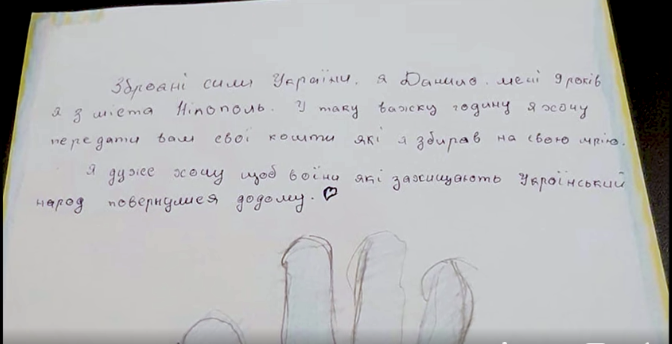 Збройні сили України. я Данило. мені 9 років
я з міста Нікополь. У таку важку годину я хочу
передати вам свої кошти які я збирав на свою мрію.
Я дуже хочу щоб воїни які захищають Український
народ повернулися додому.